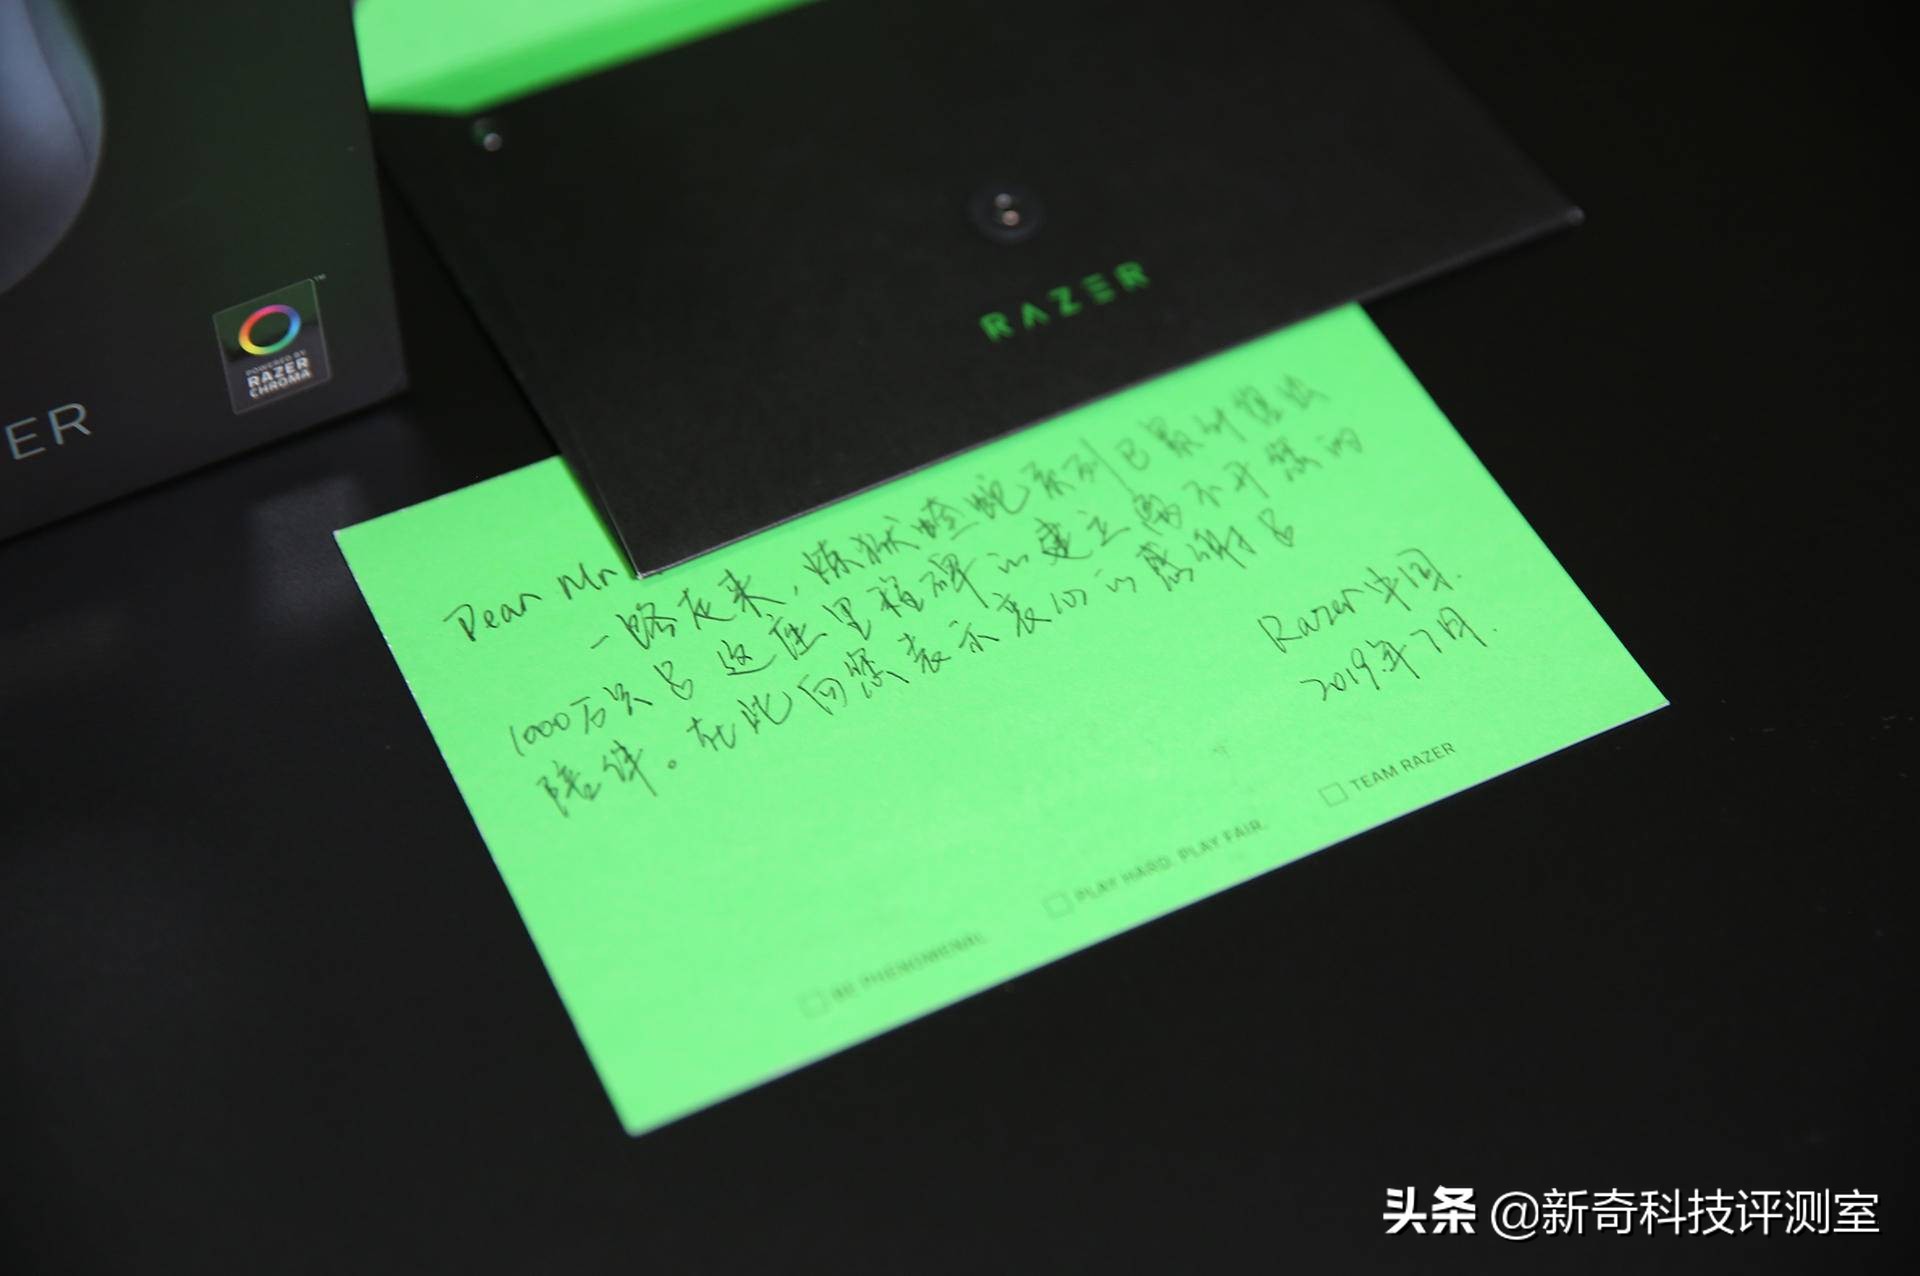 RAZER
™
POWERED BY
RAZER
CHROMA
ER
Dear Mr
一路走来，炼狱蝰蛇系列已累计售出
1000万只。这座里程碑的建立离不开您的
陪伴。在此向您表示衷心的感谢。
Razer中国.
2019年7月.
TEAM RAZER
PLAY HARD. PLAY FAIR.
BE PHENOMENAL
头条 @新奇科技评测室